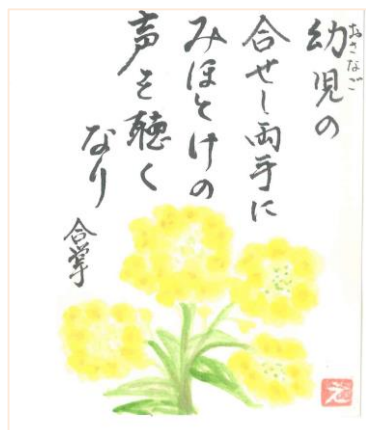 幼児の
おさなご
合せし両手に
みほとけの
声を聴く
なり
合掌
え